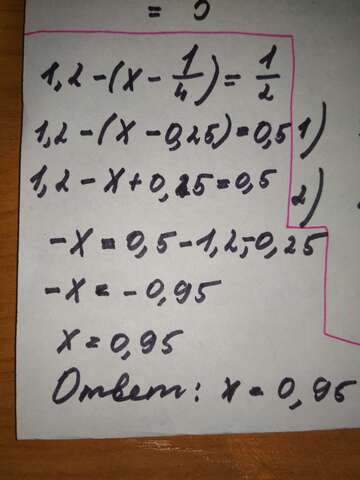 = 0
1,2 - (x - 1/4) = 1/2
1,2 - (x - 0,25) = 0,5 1)
1,2 - x + 0,25 = 0,5
2)
-x = 0,5 - 1,2 - 0,25
-x = -0,95
x = 0,95
Ответ: x = 0,95